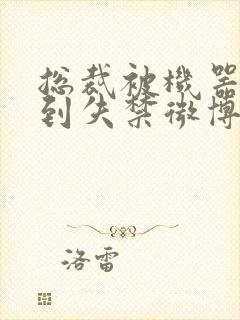 总裁被機器
到失禁微博
洛雷